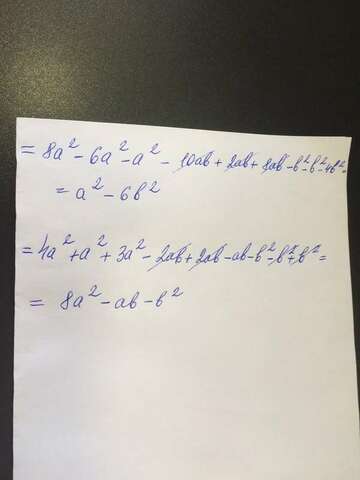 = 8a² - 6a² - a² - 10ab + 2ab + 8ab - b² - b² - 4b² =
= a² - 6b²
= 4a² + a² + 3a² - 2ab + 2ab - ab - b² - b² + b² =
= 8a² - ab - b²